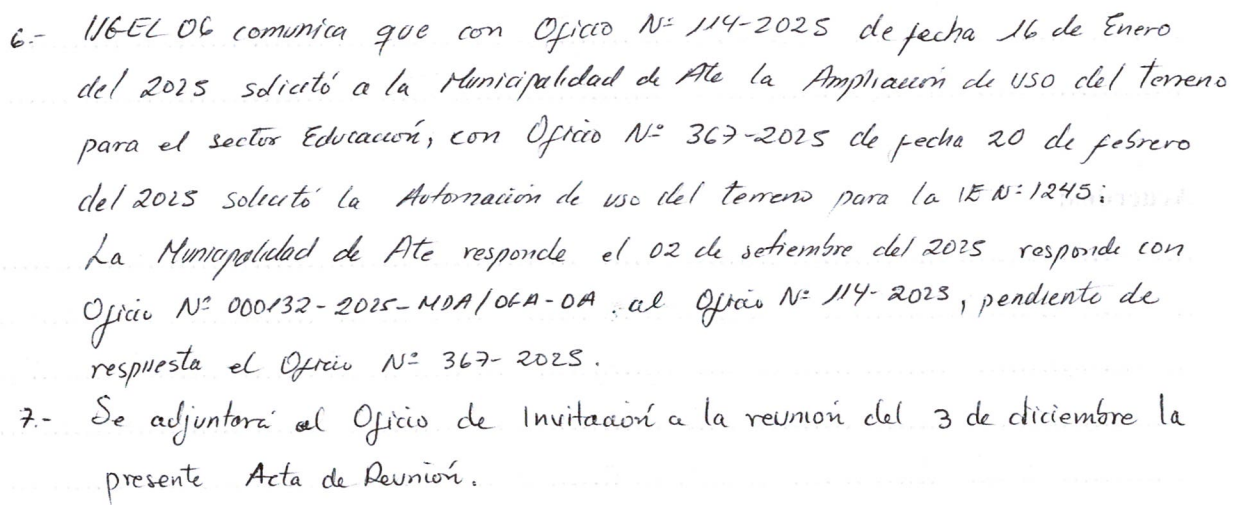 6.- UGEL 06 comunica que con Oficio Nº 114-2025 de fecha 16 de Enero
del 2025 solicitó a la Municipalidad de Ate la Ampliación de uso del Terreno
para el sector Educación, con Oficio Nº 367-2025 de fecha 20 de febrero
del 2025 solicitó la Autorización de uso del terreno para la IE Nº 1245;
La Municipalidad de Ate responde el 02 de setiembre del 2025 responde con
Oficio Nº 000132-2025-MDA/OGA-OA al Oficio Nº 114-2025, pendiente de
respuesta el Oficio Nº 367-2025.
7.- Se adjuntará al Oficio de Invitación a la reunión del 3 de diciembre la
presente Acta de Reunión.